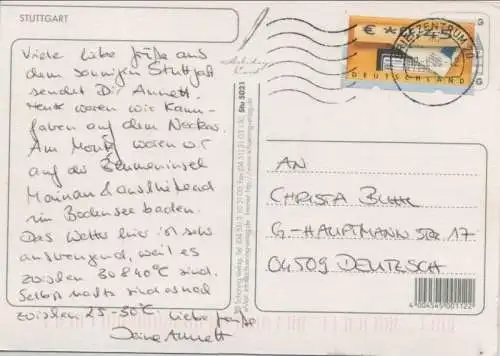 STUTTGART
Viele liebe Grüße aus
dem sonnigen Stuttgart
sendet Dir Annett.
Heute waren wir Kanu-
fahren auf dem Neckar.
Am Montag waren wir
auf der Blumeninsel
Mainau & anschließend
im Bodensee baden.
Das Wetter hier ist sehr
anstrengend, weil es
zwischen 30 & 40°C sind.
Selbst nachts sind es noch
zwischen 25-30°C. Liebe Grüße
Deine Annett
Stu 5021
€ *0,45
DEUTSCHLAND
BRIEFZENTRUM
AN
CHRISTA
G-HAUPTMANN STR 17
04509 DELITZSCH
4004545001122